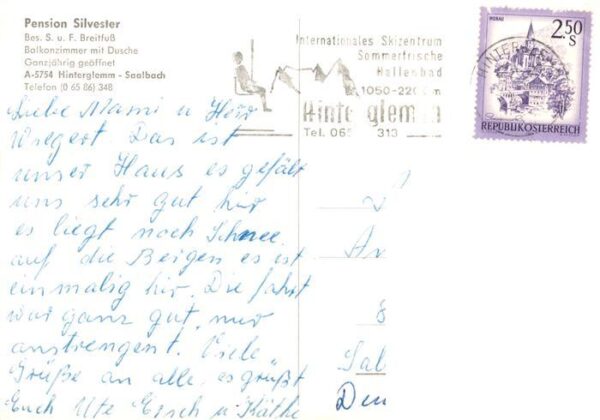 Pension Silvester
Bes. S. u. F. Breitfuß
Balkonzimmer mit Dusche
Ganzjährig geöffnet
A-5754 Hinterglemm - Saalbach
Telefon (0 65 86) 348
Internationales Skizentrum
Sommerfrische
Hallenbad
1050-2200m
Hinterglemm
Tel. 065 313
2.50
S
MURAU
REPUBLIK ÖSTERREICH
Liebe Mami u Herr
Wiegert Das ist
unser Haus es gefält
uns sehr gut hir
es liegt noch Schnee
auf die Beigen es ist
einmalig hir. Die fahrt
war ganz gut, nur
anstrengent. Viele
Grüße an alle, es grüßt
Euch Ute Erich u. Käthe
Ar
8
Sal
Den